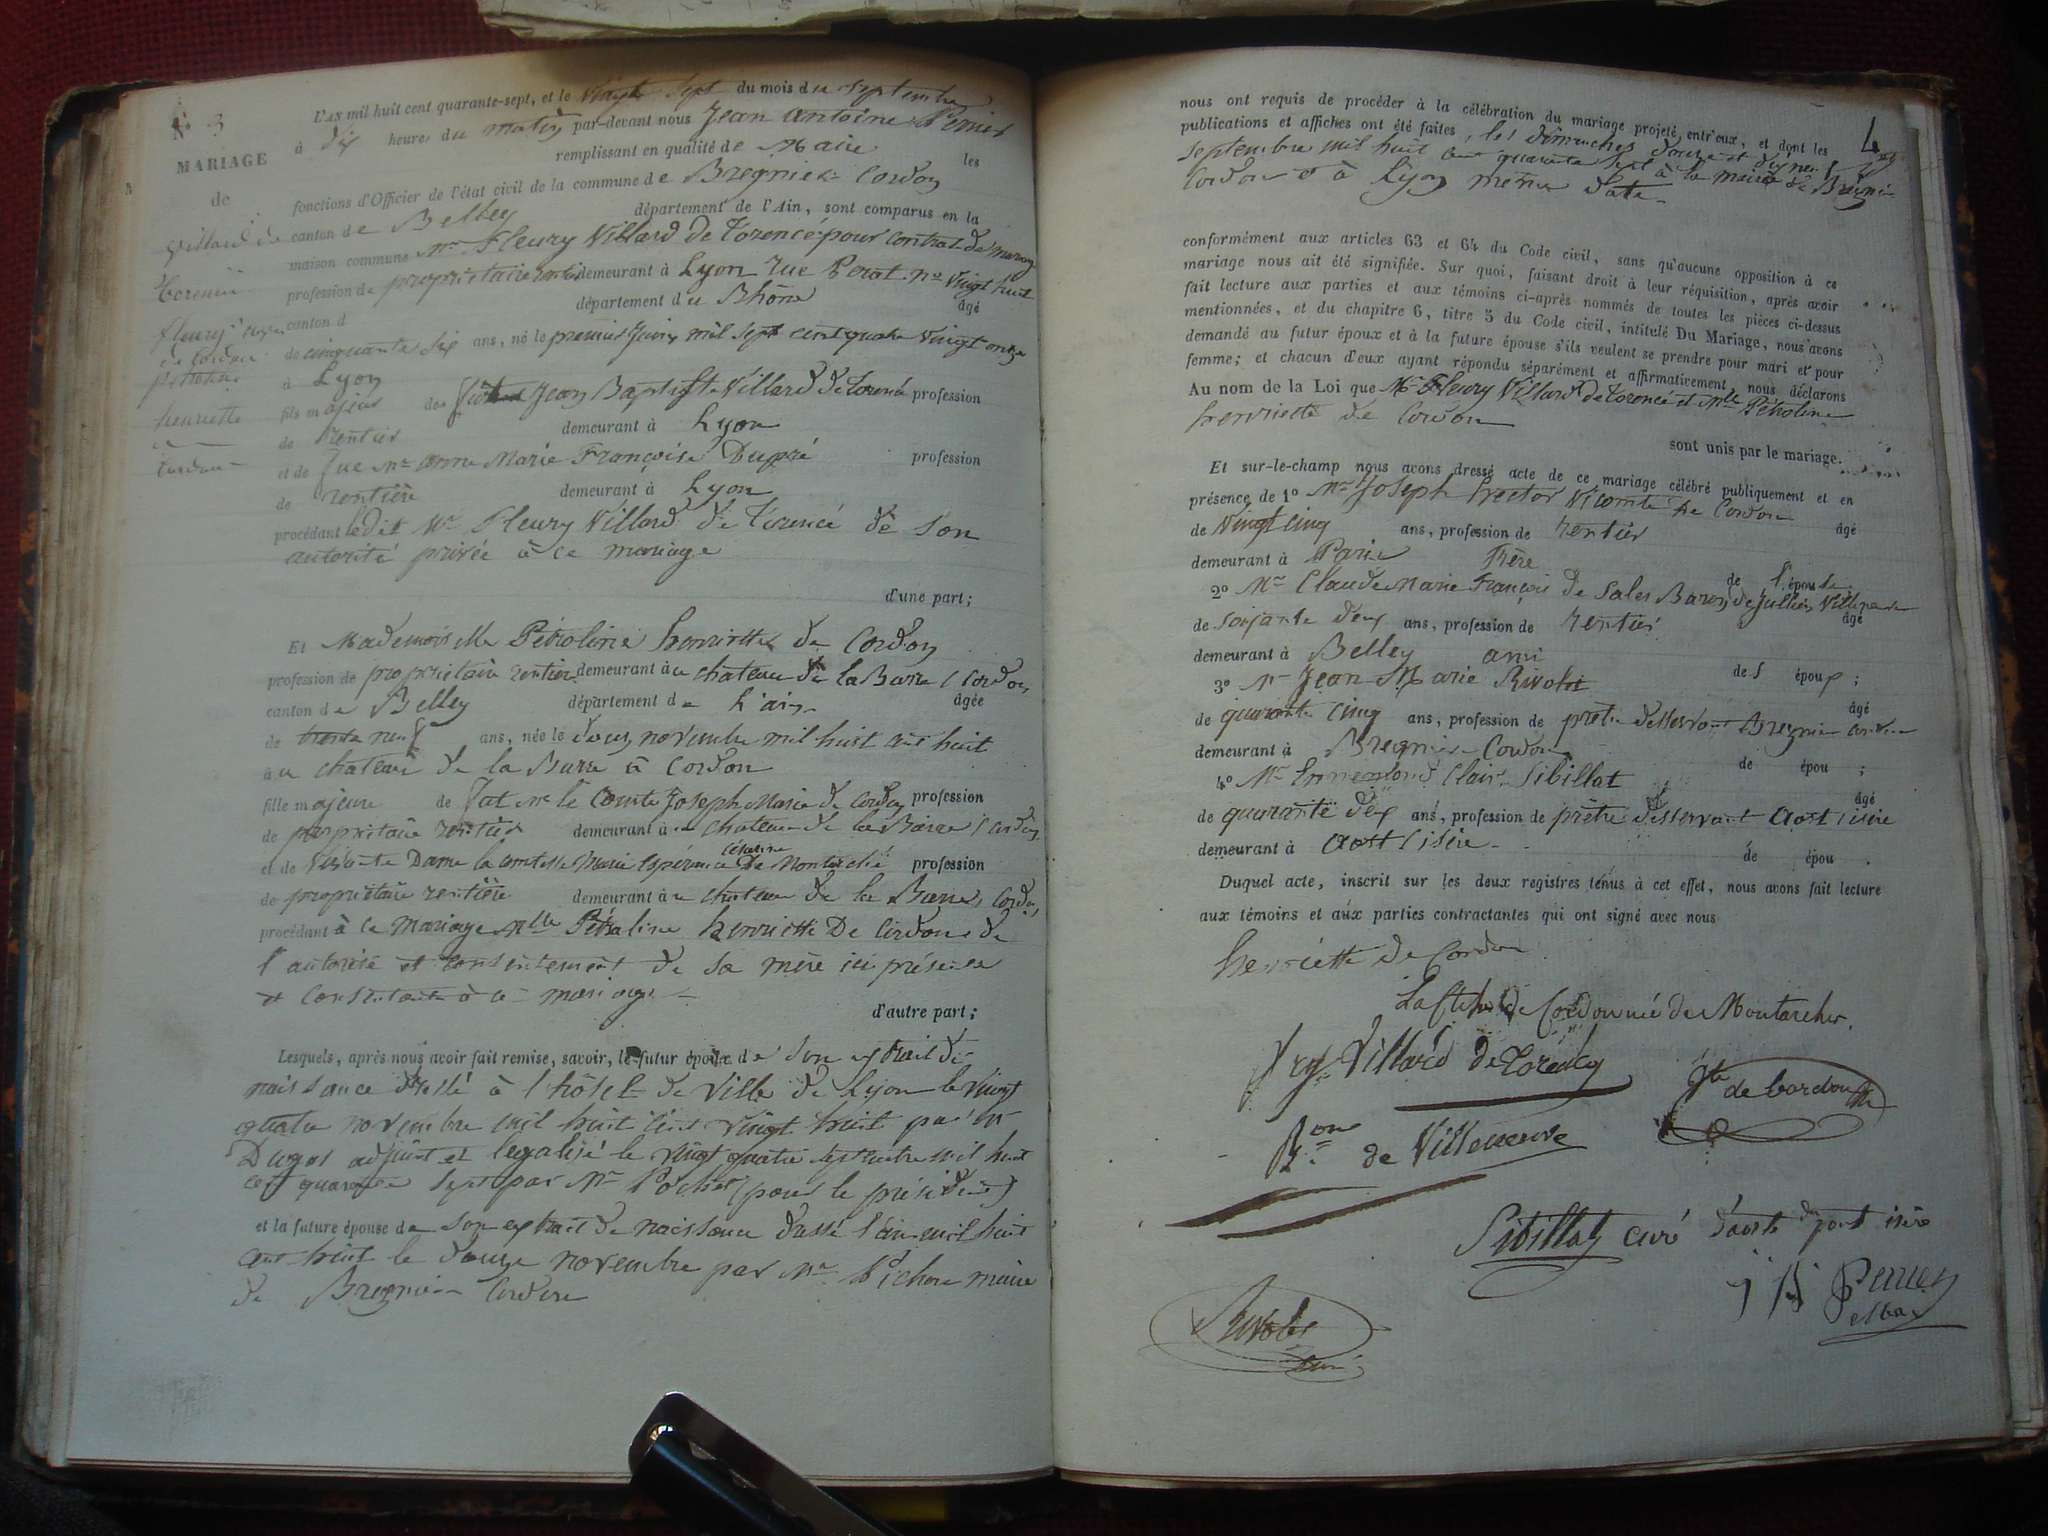 N° 3
MARIAGE
de
Villard de
Torencé
fleury avec
de Cordon
petroline
henriette
de
Cordon
L'AN mil huit cent quarante-sept, et le Vingt Sept du mois de septembre
à dix heures du matin par-devant nous Jean Antoine
remplissant en qualité de Maire les
fonctions d'Officier de l'état civil de la commune de Bregnier Cordon
canton de Belley département de l'Ain, sont comparus en la
maison commune Mr Fleury Villard de Torencé pour contrat de mariage
profession de propriétaire rentier demeurant à Lyon rue Perat no Vingt huit
canton d département du Rhône âgé
de cinquante six ans, né le premier Juin mil sept cent quatre Vingt onze
à Lyon
fils majeur de Jean Baptiste Villard de Torencé profession
de Rentier demeurant à Lyon
et de fue Me anne Marie Françoise Dupré profession
de rentière demeurant à Lyon
procédant ledit Mr Fleury Villard de Torencé de son
autorité privée à ce mariage
d'une part;
Et Mademoiselle Pétroline henriette de Cordon
profession de propriétaire rentière demeurant au chateau de la Barre / Cordon,
canton de Belley département de L'ain âgée
de trente neuf ans, née le douze novembre mil huit cent huit
au chateau de la Barre à Cordon
fille majeure de fat Mr le Comte Joseph Marie de Cordon profession
de propriétaire rentier demeurant à au chateau de la Barre / Cordon,
et de Vivante Dame la comtesse Marie Espérance Césarine De Montarché profession
de propriétaire rentière demeurant au chateau de la Barre, Cordon,
procédant à ce mariage Mlle Pétroline henriette De Cordon de
l'autorisé et consentement de sa mère ici présente
et consentante à ce mariage
d'autre part;
Lesquels, après nous avoir fait remise, savoir, le futur époux de son extrait de
naissance dressé à l'hôtel de Ville de Lyon le Vingt
quatre novembre mil huit cent Vingt huit par Mr
Dugos adjoint et legalisé le vingt quatre septembre mil huit
cent quarante sept par Mr Pochet (pour le président)
et la future épouse de son extrait de naissance dressé l'an mil huit
cent huit le douze novembre par Mr Vichon maire
de Bregnier Cordon
4
nous ont requis de procéder à la célébration du mariage projeté entr'eux, et dont les
publications et affiches ont été faites, les dimanches douze et dixneuf
septembre mil huit cent quarante sept à la mairie de Bregnier
Cordon et à Lyon même date
conformément aux articles 63 et 64 du Code civil, sans qu'aucune opposition à ce
mariage nous ait été signifiée. Sur quoi, faisant droit à leur réquisition, après avoir
fait lecture aux parties et aux témoins ci-après nommés de toutes les pièces ci-dessus
mentionnées, et du chapitre 6, titre 5 du Code civil, intitulé Du Mariage, nous avons
demandé au futur époux et à la future épouse s'ils veulent se prendre pour mari et pour
femme; et chacun d'eux ayant répondu séparément et affirmativement, nous déclarons
Au nom de la Loi que Mr Fleury Villard de Torencé et Mlle Pétroline
henriette de Cordon
sont unis par le mariage.
Et sur-le-champ nous avons dressé acte de ce mariage célébré publiquement et en
présence de 1° Mr Joseph hector Vicomte de Cordon
de Vingt cinq ans, profession de rentier âgé
demeurant à Paris frère de l'épouse
2° Mr Claude Marie François de Sales Baron de Jullien Villeneuve
de Soixante deux ans, profession de rentier âgé
demeurant à Belley ami
3° Mr Jean Marie Rivolet de l époux;
de quarante cinq ans, profession de prêtre desservant Bregnier Cordon âgé
demeurant à Bregnier Cordon
4° Mr Ennemond Clair Sibillat de épou ;
de quarante deux ans, profession de prêtre desservant Aost / isère âgé
demeurant à Aost / isère
de épou .
Duquel acte, inscrit sur les deux registres tenus à cet effet, nous avons fait lecture
aux témoins et aux parties contractantes qui ont signé avec nous
henriette de Cordon
La Ctesse de Cordon née de Montarcher
Villard de Torency
Vte de Cordon
Bon de Villeneuve
Sibillat curé d'aoste isère
curé